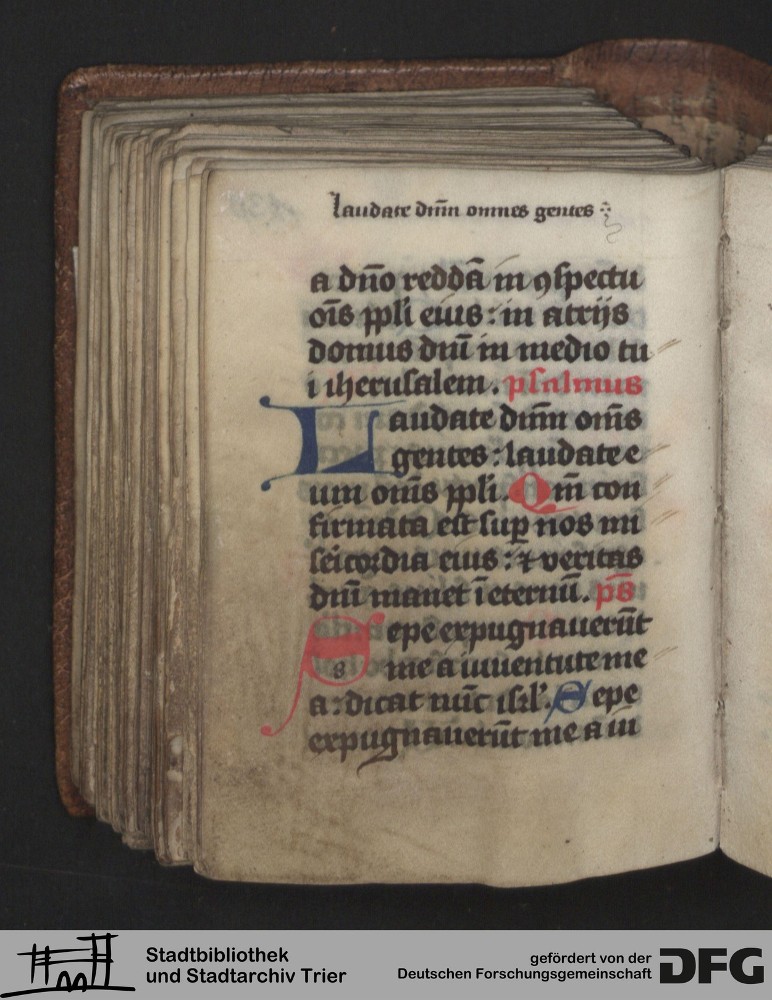 laudate dnm̄ omnes gentes
a dn̄o reddā in ꝯspectu
oīs ppl̄i eius : in atrijs
domus dnī in medio tu
i iherusalem . psalmus
Laudate dnm̄ oms̄
gentes : laudate e
um oms̄ ppl̄i . Qm̄ con
firmata est suꝑ nos mi
sẽicordia eius : ⁊ veritas
dnī manet ī eternū . ps̄
Sepe expugnauerūt
me a iuuentute me
a : dicat nūc isrl̓ . Sepe
expugnauerūt me a iu
Stadtbibliothek
und Stadtarchiv Trier
gefördert von der
Deutschen Forschungsgemeinschaft
DFG